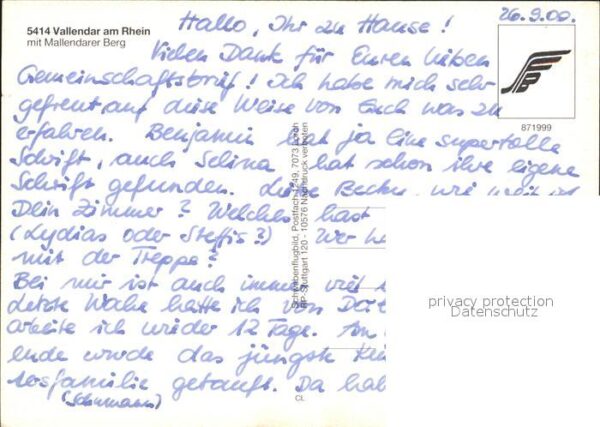 5414 Vallendar am Rhein
mit Mallendarer Berg
26.9.00.
Hallo, Ihr zu Hause!
Vielen Dank für Euren lieben
Gemeinschaftsbrief! Ich habe mich sehr
gefreut, auf diese Weise von Euch was zu
erfahren. Benjamin hat ja eine supertolle
Schrift, auch Selina hat schon ihre eigene
Schrift gefunden. Liebe wie weit ist
Dein Zimmer? Welches hast
(Lydias oder Steffis?) Wer
mit der Treppe?
Bei mir ist auch immer viel
Letzte Woche hatte ich von
arbeite ich wieder 12 Tage. Am
ende wurde das jüngste
getauft. Da
(Schumann)
871999
Schwabenflugbild, Postfach 1249, 7073 Lorch
RP-Stuttgart 120 - 10576 Nachdruck verboten
CL
privacy protection
Datenschutz